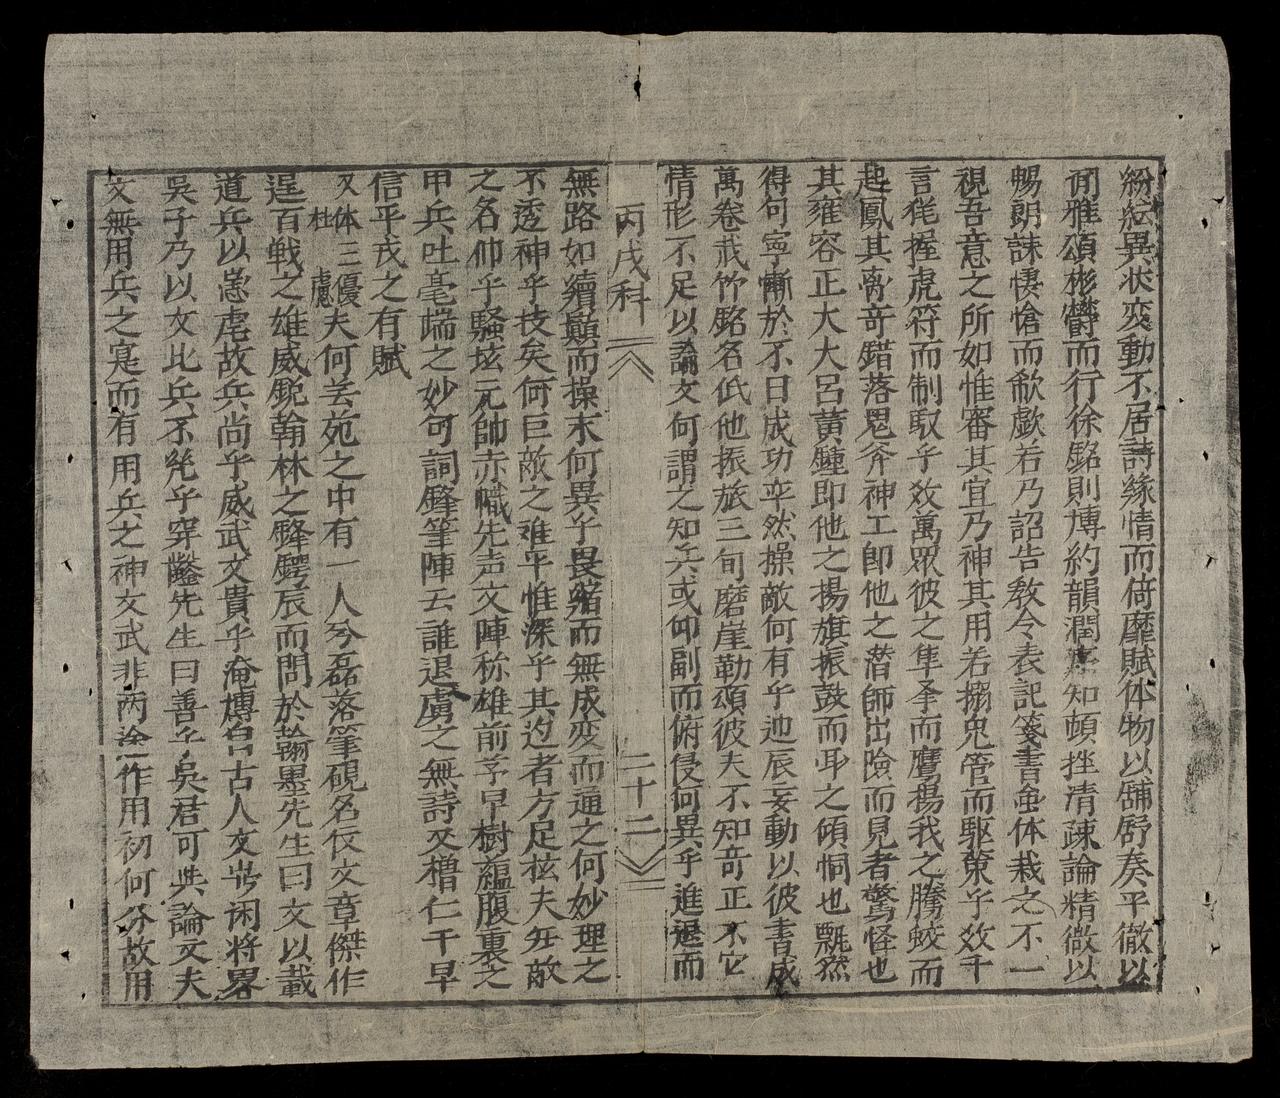 紛紜異狀変動不居詩緣情而倚靡賦体物以舖舒奏平徹以
閒雅頌彬欝而行徐銘則博約韻潤箴知頓挫清疎論精微以
暢朗誄悽愴而欷歔若乃詔告敎令表記箋書虽体裁之不一
視吾意之所如惟審其宜乃神其用若搦兎管而駆策乎效千
言恍握虎符而制馭乎效萬眾彼之隼 而鷹揚我之騰蛟而
起鳳其 竒錯落鬼斧神工卽他之潜師出險而見者驚怪也
其雍容正大大呂黃鍾即他之揚旗振鼓而耳之碩恫也飄然
得句寧慚於不日成功卒然操敵何有乎迆辰妄動以彼書成
萬卷戒竹銘名氏他振旅三旬磨崖勒頌彼夫不知竒正不它
情形不足以論文何謂之知兵或仰副而俯侵何異乎進退而
丙戌科 二十二
無路如續顚而操末何異乎畏 而無成変而通之何妙理之
不透神乎技矣何巨敵之难平惟深乎其迃者方足 夫 敵
之名仰乎騷坛元帥赤幟先声文陣称雄前芧早樹蘊腹裏之
甲兵吐毫端之妙可詞鋒筆陣云誰退虜之無詩文櫓仁干早
信平戎之有賦
又体三優 杜 慮夫何芸苑之中有一人兮磊落筆硯名伎文章傑作
逞百戦之雄威銳翰林之鋒鍔辰而問於翰墨先生曰文以載
道兵以 虐故兵尚乎威武文貴乎淹博自古人文 闲將畧
吳子乃以文比兵不 乎穿鑿先生曰善乎吳君可共論文夫
文無用兵之寔而有用兵之神文武非两途作用初何分故用